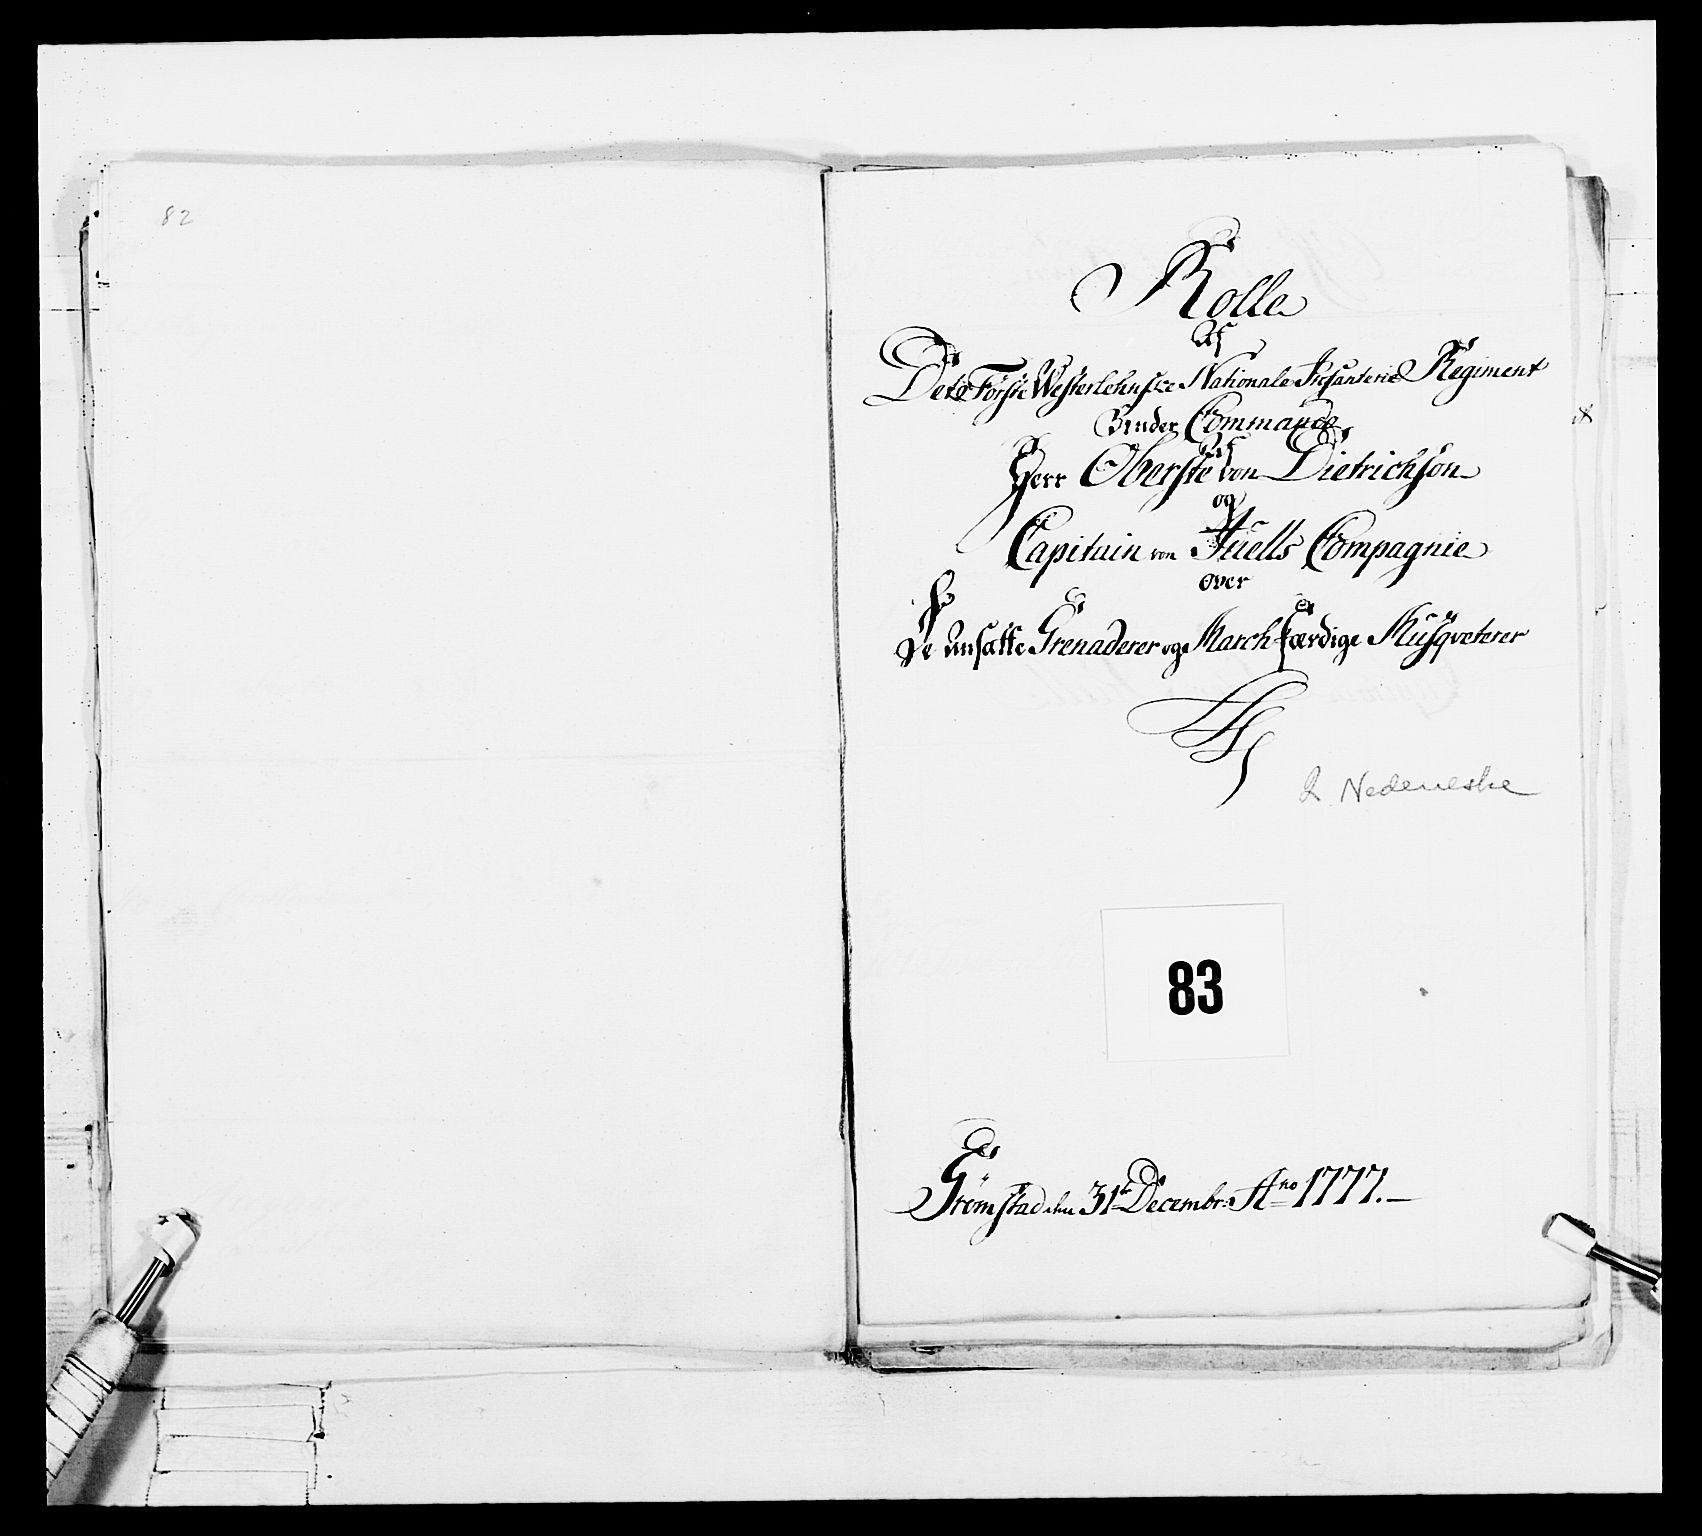 82
Rolle
Af
Det Første Westerlehnske Nationale Infanterie Regiment
Under Commando
Af
Herr Oberste von Dietrichson
og
Capitain von Juells Compagnie
over
De Ansatte Grenaderer og March færdige Musqveterer
2 Nedeneske
83
Grømstad den 31te Decembr: Ano 1777.